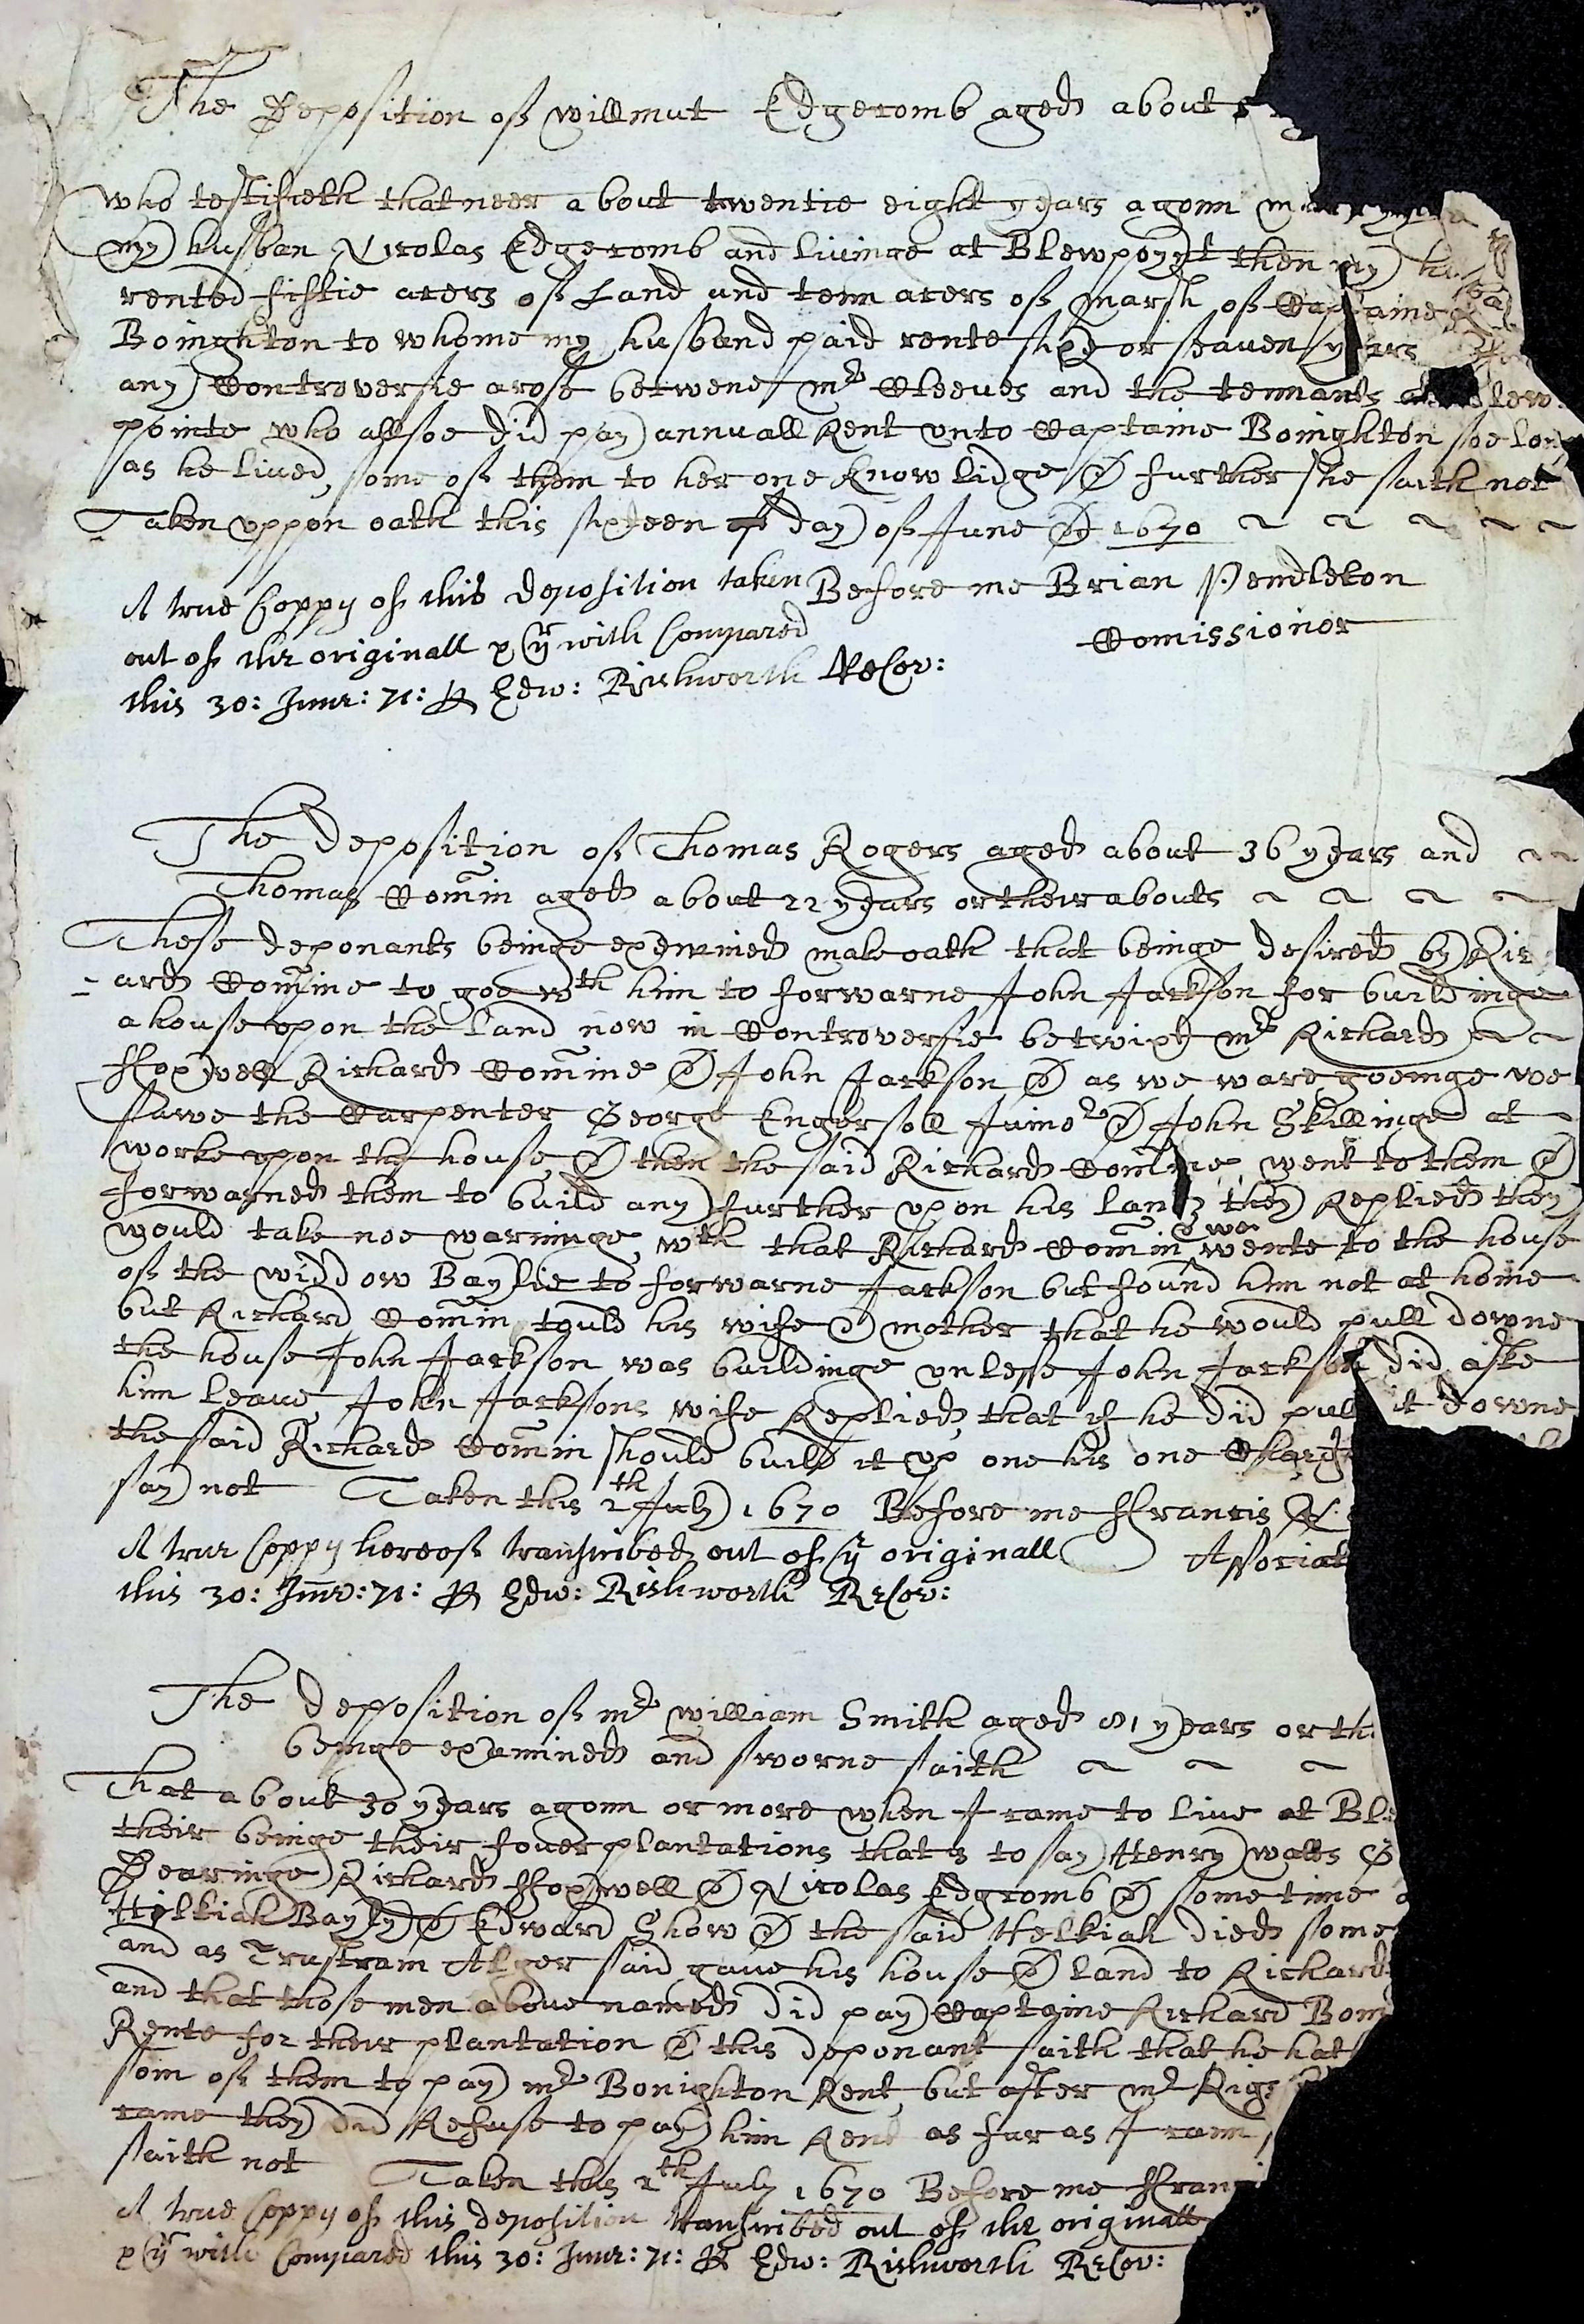 The Deposition of Willmut Edgecomb aged about
who testifieth that neer about twentie eight years agonn
my husban Nicolas Edgecomb and livinge at Blewpoynt then my
rented fiftie acers of Land and tenn acers of marsh of Captaine
Boinghton to whome my husband paid rente six or seaven years
any Controversie arose betwene mr Cleeves and the tennants at Blew
pointe who allsoe did pay annuall Rent unto Captaine Boinghton soe long
as he lived, some of them to her one knowlidge & further she saith not
Taken uppon oath this sixteen day of June 1670
A true Coppy of this deposition taken Before me Brian Pendleton
out of the originall & yr with Compared Comissionor
this 30: June: 71: p Edw: Rishworth ReCor:
The deposition of Thomas Rogers aged about 36 years and
Thomas Comin aged about 22 years or theirabouts
These deponants beinge exemined make oath that beinge desired by Rich
ard Comine to goe wth him to forwarne John Jackson for buildinge
a house upon the land now in Controversie betwixt mr Richard
ffoxwell Richard Comine & John Jackson & as we ware goeinge we
sawe the Carpenter George Engersoll Juinor & John Skillinge at
worke upon the house, & then the said Richard Comine went to them &
forwarned them to build any further upon his land they Replied they
would take noe warninge, wth that Richard Comin & we wente to the house
of the widdow Baylie to forwarne Jackson but found him not at home
but Richard Comin tould his wife & mother that he would pull downe
the house John Jackson was buildinge unlesse John Jackson did aske
him leave John Jacksons wife Replied, that if he did pull it downe
the said Richard Comin should build it up one his one Charge
say not Taken this 2th July 1670 Before me ffrancis
A true Coppy hereof transcribed out of yr originall Associat
this 30: June: 71: p Edw: Rishworth ReCor:
The deposition of mr William Smith aged 81 years or th
beinge exemined and sworne saith
That about 30 years agonn or more when I came to live at Ble
their beinge their fower plantations that is to say Henry Watts
Dearinge Richard ffoxwell & Nicolas Edgcomb & some time
Hilkiah Bayly & Edward Show & the said Helkiah died some
and as Trustram Alger said gave his house & land to Richard
and that those men above named did pay Captaine Richard Bon
Rente for their plantation & this deponant saith that he hath
som of them to pay mr Bonighton Rent, but after mr Rig
came they did Refuse to pay him Rent as far as I cann
saith not Taken this 2th July 1670 Before me ffranci
A true Coppy of this deposition transcribed out of the originall
& yr with Compared this 30: June: 71: p Edw: Rishworth ReCor: